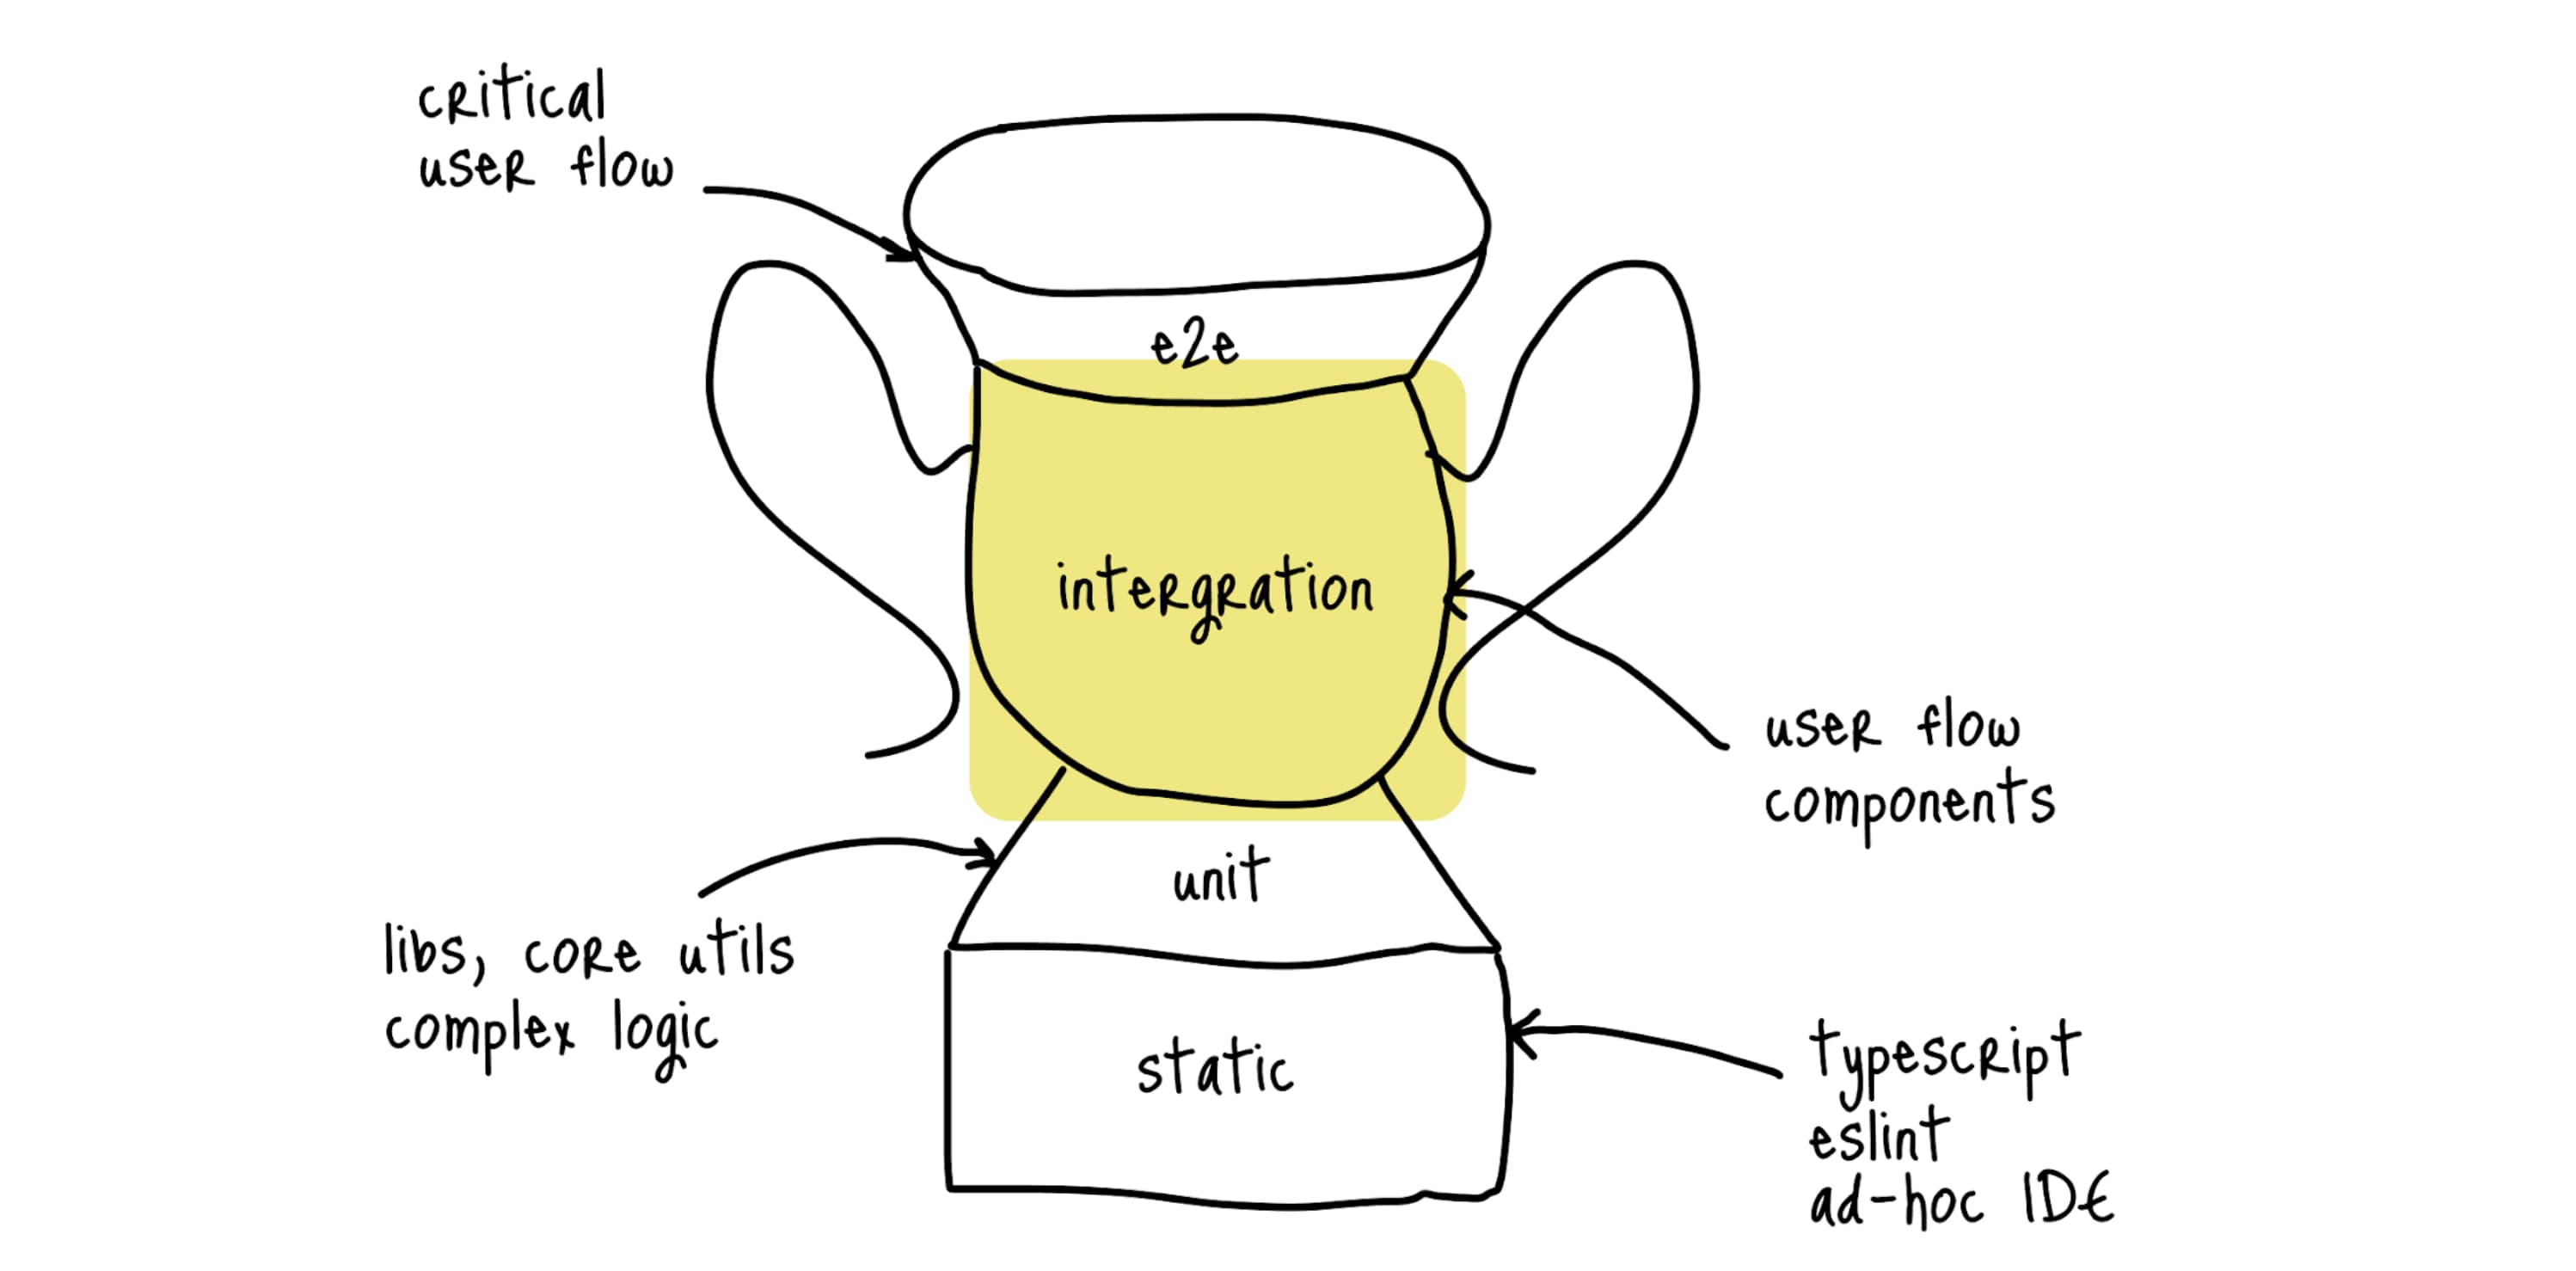 critical
user flow
e2e
intergration
user flow
components
unit
libs, core utils
complex logic
static
typescript
eslint
ad-hoc IDE